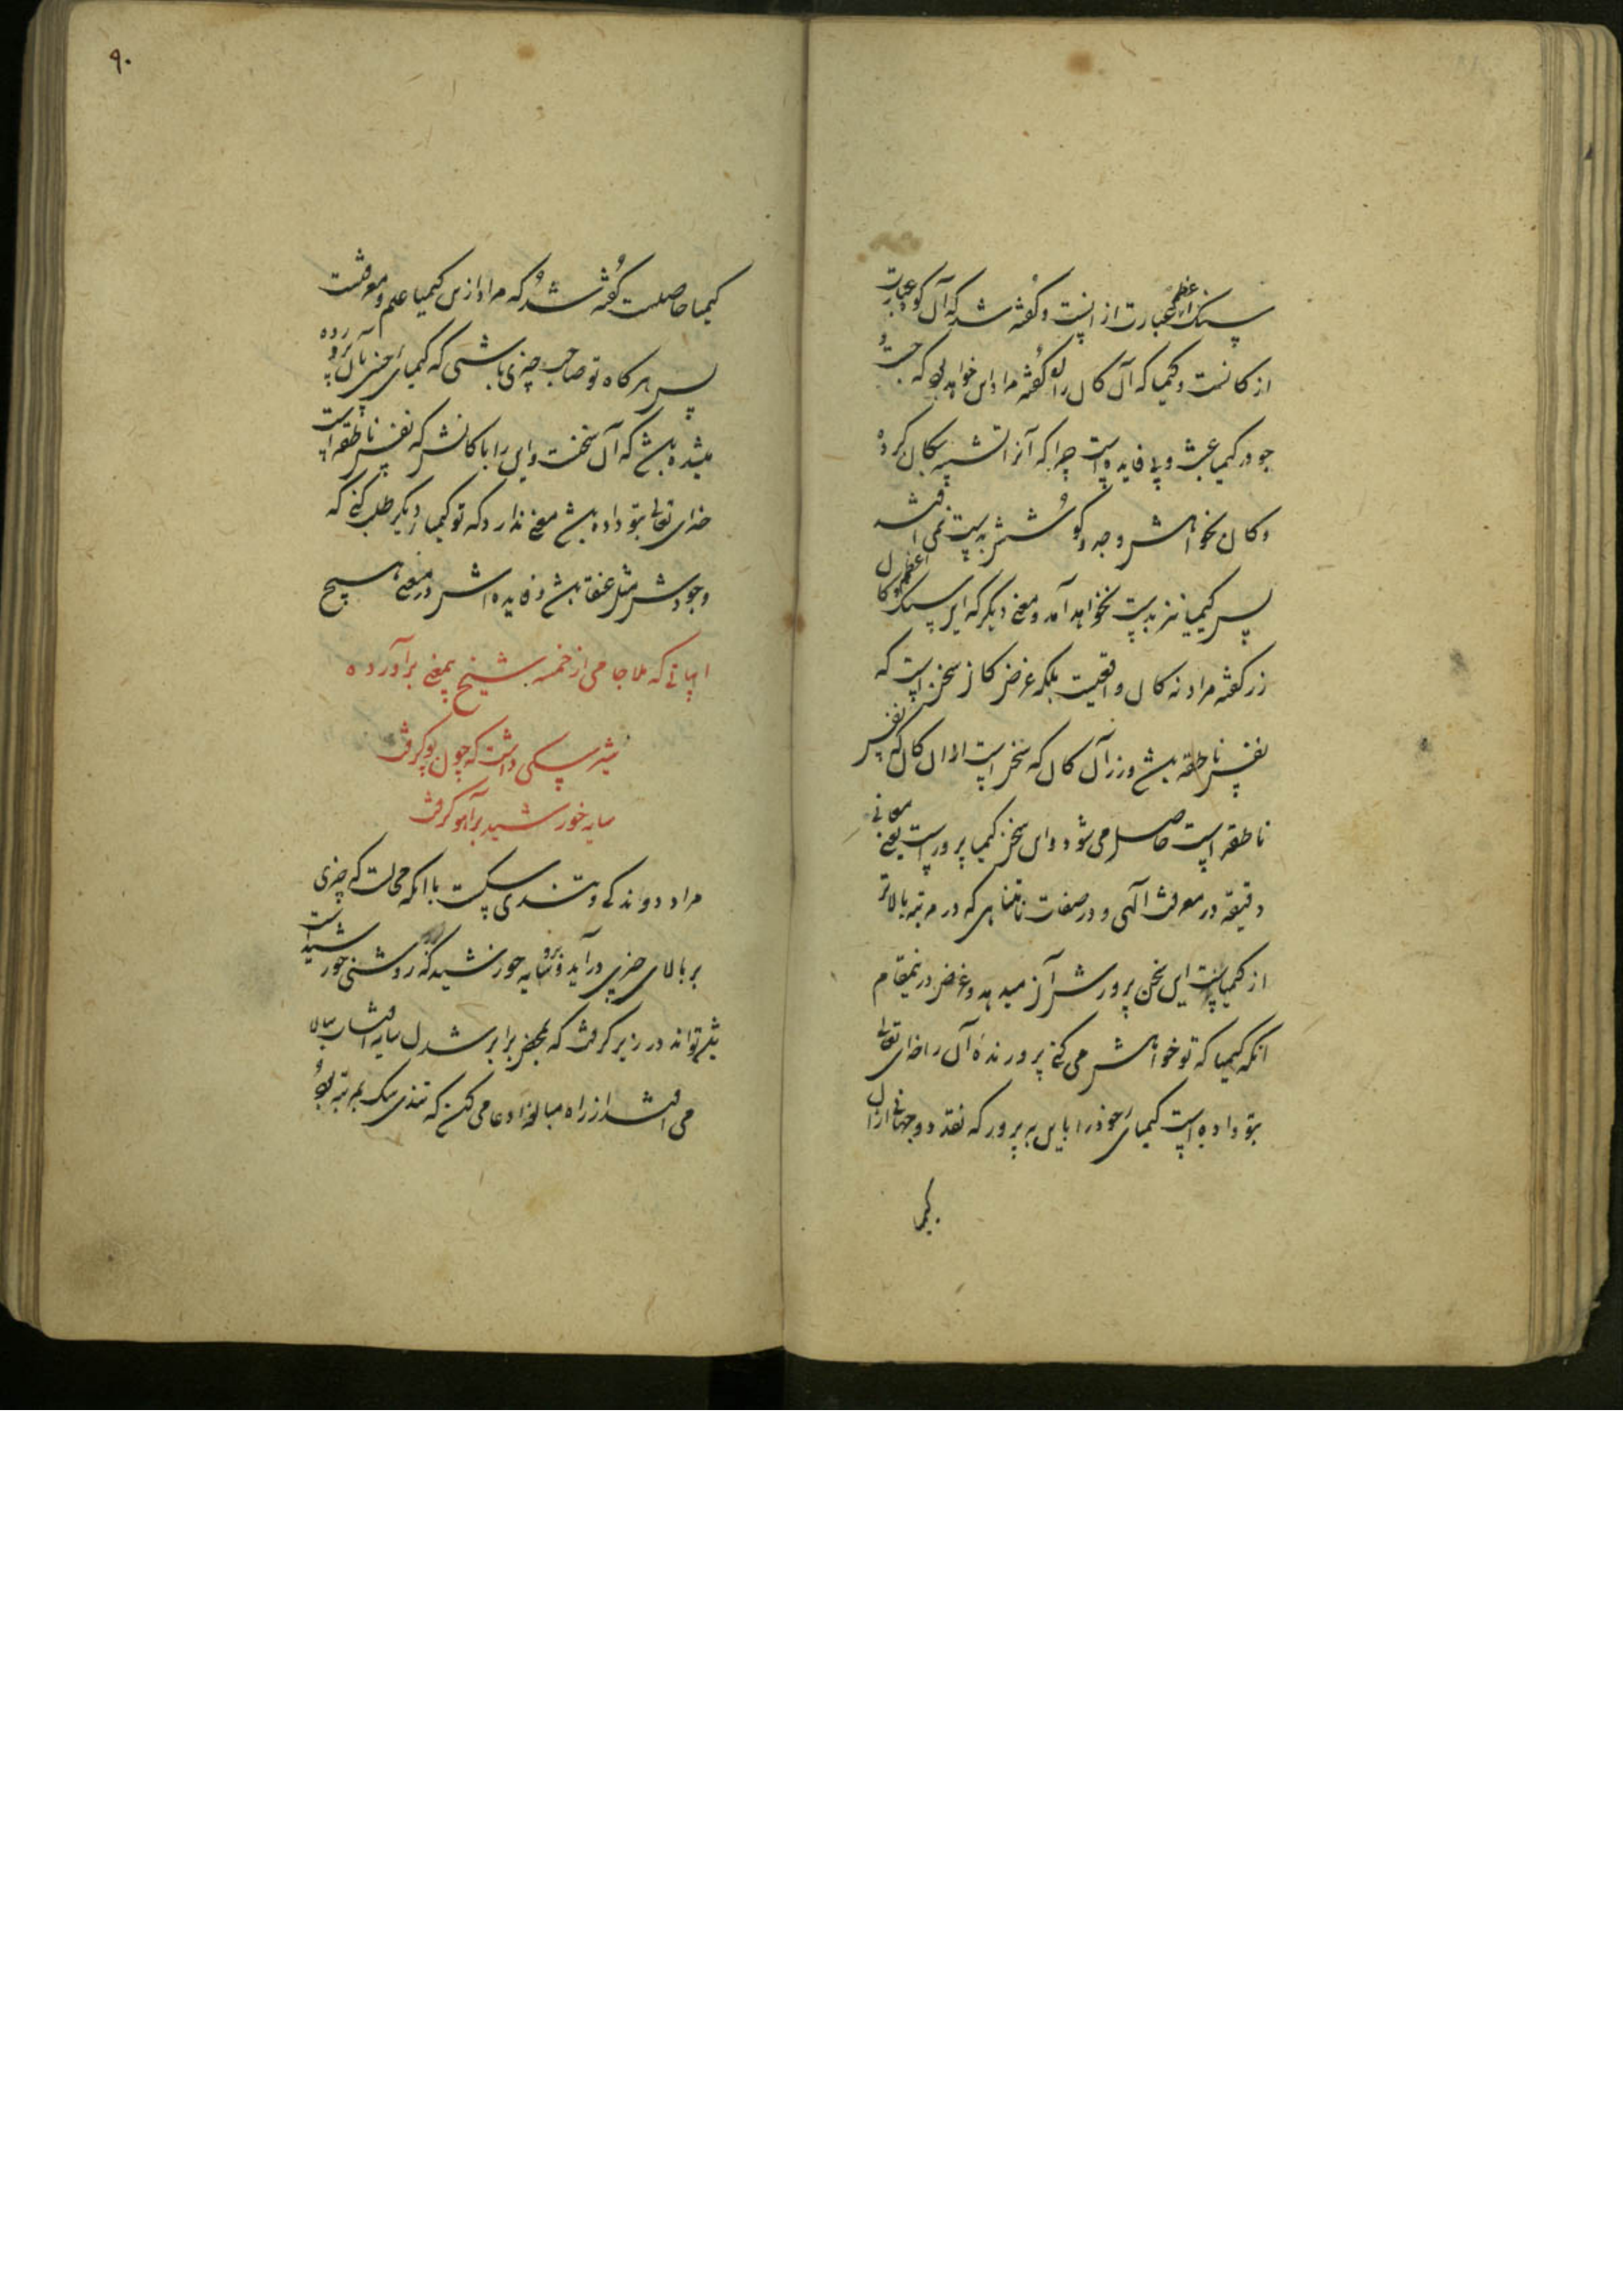 سنک اعظم عبارت از انست و کفته شد که آن کوه عبارت
از کانست و کیمیا که آن کان را کفته مراد این خواهد بود که جست و
جو در کیمیا عبث و بی فایده است چرا که آنرا تشبیه بکان کرده
و کان بخواهش و جد و کوشش بدست نمی افتد
پس کیمیا نیز بدست نخواهد آمد و معنی دیکر که این سنک اعظم و کان
زر کفته مراد نه کان واقعیست بلکه غرض کان سخن است که
نفس ناطقه باشد و زر آن کان که سخن است از آن کان که نفس
ناطقه است حاصل می شود و این سخن کیمیا پرور است یعنی معانی
دقیقه در معرفت آلهی و در صفات نامتناهی که در مرتبه بالاتر
از کیمیاست این سخن پرورش آن میدهد و غرض درینمقام
انکه کیمیا که تو خواهش می کنی پرورنده آن را خدای تعالی
بتو داده است کیمیای خود را باین به پرور که نقد دو جهانی ازان
کیمیا
۹۰
کیمیا حاصلست کفته شد که مراد ازین کیمیا علم و معرفتست
پس هرکاه تو صاحب چیزی باشی که کیمیای چنین بآن پرورده
میشده باشد که آن سخنست و این را با کانش که نفس ناطقه است
خدای تعالی بتو داده باشد معنی ندارد که تو کیمیا از دیکر طلب کنی که
وجودش مثل عنقا باشد و فایده اش در معنی هیچ
ابیاتی که ملا جامی از خمسه شیخ بمعنی برآورده
تیزسکی داشت که چون پو کرفت
سایه خورشید بر آهو کرفت
مراد دوندکی و تندی سکست با انکه محالست که چیزی
بر بالای چیزی درآید و برو سایه خورشید که روشنی خورشید است
نمی تواند در زیر کرفت که بمحض برابر شدن سایه افتاب ببالا
می افتد از راه مبالغه ادعا می کند که تندی سک بمرتبه بود